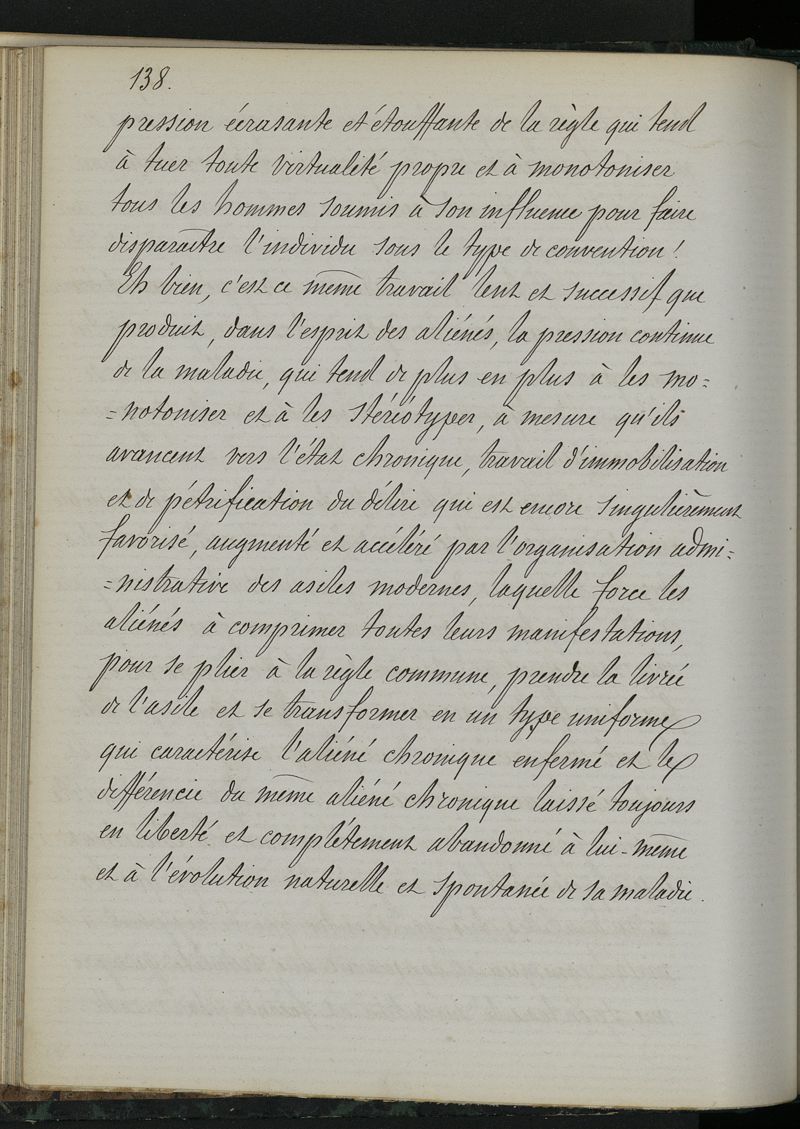 138.
pression écrasante et étouffante de la règle qui tend
à tuer toute virtualité propre et à monotoniser
tous les hommes soumis à son influence pour faire
disparaître l'individu sous le type de convention !
Eh bien, c'est ce même travail lent et successif que
produit, dans l'esprit des aliénés, la pression continue
de la maladie, qui tend de plus en plus à les mo=
=notoniser et à les stéréotyper, à mesure qu'ils
avancent vers l'état chronique, travail d'immobilisation
et de pétrification du délire qui est encore singulièrement
favorisé, augmenté et accéléré par l'organisation admi=
=nistrative des asiles modernes, laquelle force les
aliénés à comprimer toutes leurs manifestations,
pour se plier à la règle commune, prendre la livrée
de l'asile et se transformer en un type uniforme
qui caractérise l'aliéné chronique enfermé et le
différencie du même aliéné chronique laissé toujours
en liberté et complétement abandonné à lui-même
et à l'évolution naturelle et spontanée de sa maladie.